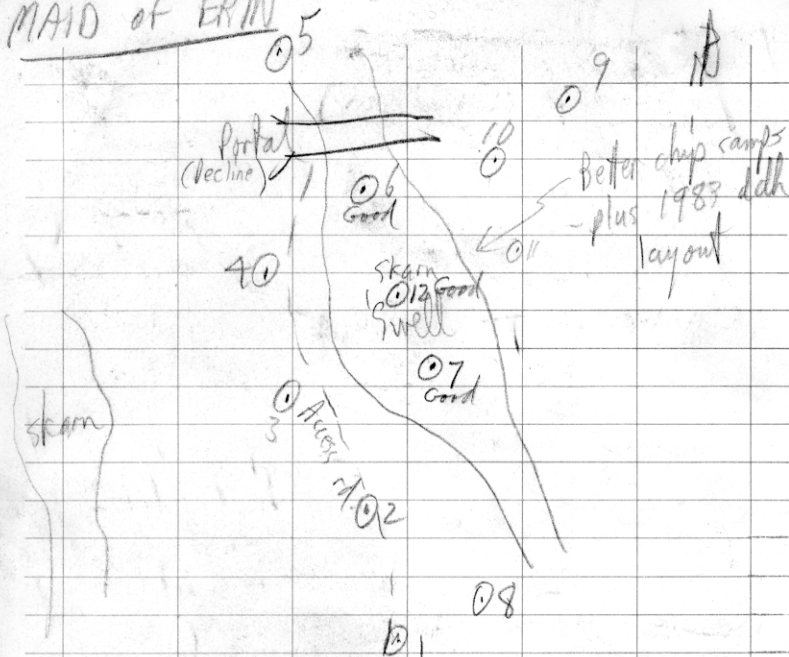 MAID of ERIN
5
9
N
Portal
(Decline)
10
Better chip samps
- plus 1983 ddh
layout
6
Good
11
4
skarn
12 Good
Swell
7
Good
3
Access rd.
skarn
2
8
1